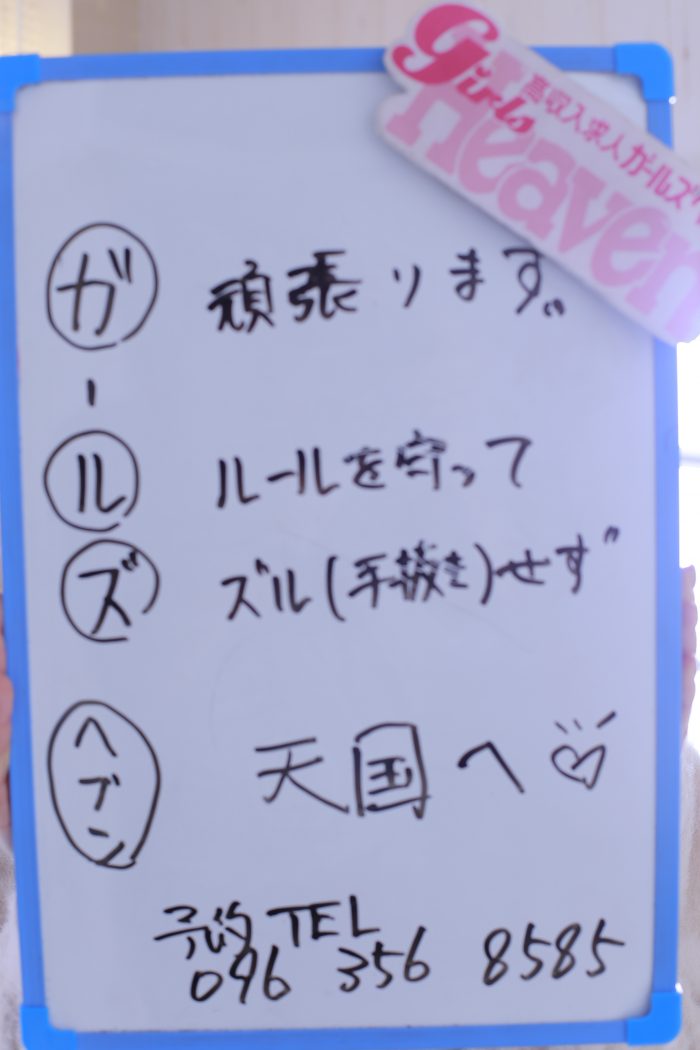 Girls
Heaven
高収入求人ガールズヘ
ガ 頑張ります。
ー
ル ルールを守って
ズ ズル(手抜き)せず
ヘブン 天国へ♡
予約 TEL
096 356 8585